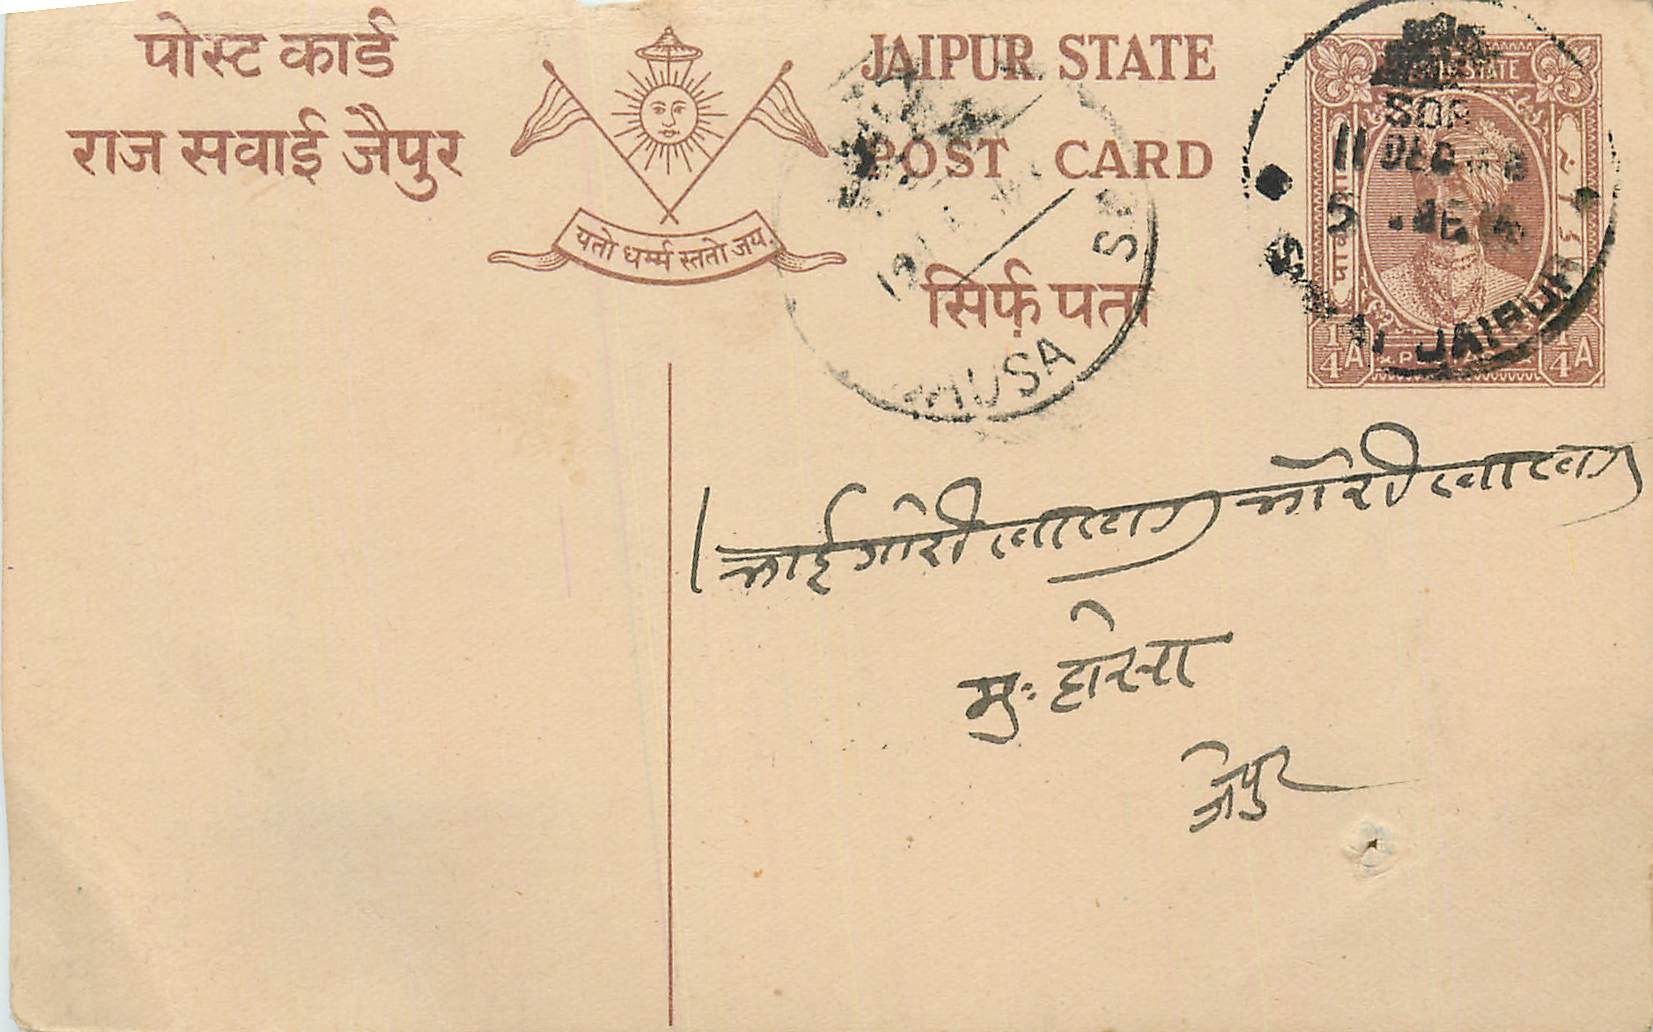 पोस्ट कार्ड
राज सवाई जैपुर
यतो धर्म्म स्ततो जय:
JAIPUR STATE
POST CARD
सिर्फ़ पता
STATE
1/4 A
1/4 A
11 DEC
SAWAI JAIPUR
AUSA
भाई गोरीलाल
मु: दोसा
जेपुर